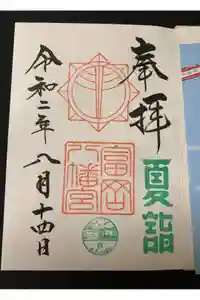 奉拝
夏詣
富岡
八幡宮
令和二年八月十四日